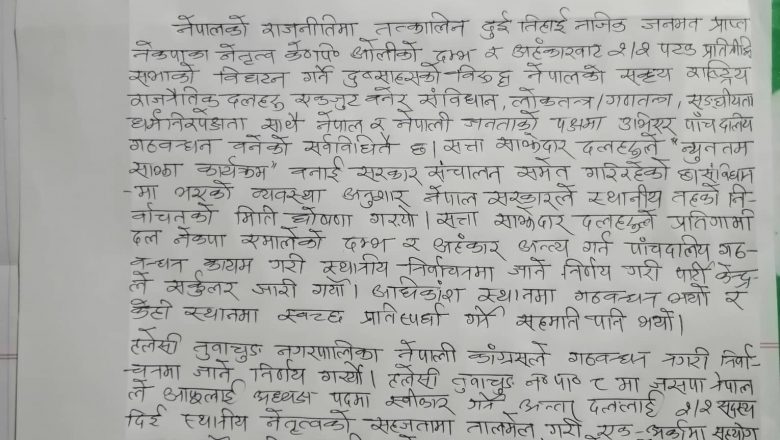 नेपालको राजनीतिमा तत्कालिन दुई तिहाई नजिक जनमत प्राप्त
नेकपाका नेतृत्व के०पी० ओलीको दम्भ र अहंकारबाट २/२ पटक प्रतिनिधि
सभाको विघटन गर्ने दुष्साहसको विरुद्ध नेपालको सक्रिय राष्ट्रिय
राजनैतिक दलहरु एकजुट बनेर संविधान, लोकतन्त्र/गणतन्त्र, सङ्घीयता
धर्म निरपेक्षता साथै नेपाल र नेपाली जनताको पक्षमा उभिएर पाँच दलीय
गठबन्धन बनेको सर्वविधितै छ। सत्ता साझेदार दलहरुले "न्युनतम
साझा कार्यक्रम" बनाई सरकार संचालन समेत गरिरहेको छ। संविधान
-मा भएको व्यवस्था अनुसार नेपाल सरकारले स्थानीय तहको नि-
र्वाचनको मिति घोषणा गर्‍यो। सत्ता साझेदार दलहरुले प्रतिगामी
दल नेकपा एमालेको दम्भ र अहंकार अन्त्य गर्न पाँचदलीय गठ-
बन्धन कायम गरी स्थानीय निर्वाचनमा जाने निर्णय गरी पार्टी केन्द्र-
ले सर्कुलर जारी गर्यो। अधिकांश स्थानमा गठबन्धन भयो र
केही स्थानमा स्वच्छ प्रतिस्पर्धा गर्ने सहमति पनि भयो।
हलेसी तुवाचुङ नगरपालिका नेपाली कांग्रेसले गठबन्धन नगरी निर्वा-
चनमा जाने निर्णय गर्‍यो। हलेसी तुवाचुङ न० पा० ८ मा जसपा नेपाल
ले आफूलाई अध्यक्ष पदमा स्वीकार गर्ने अन्य दललाई २/२ सदस्य
दिई स्थानीय नेतृत्वको सहजतामा तालमेल गरी एक-अर्कामा सहयोग